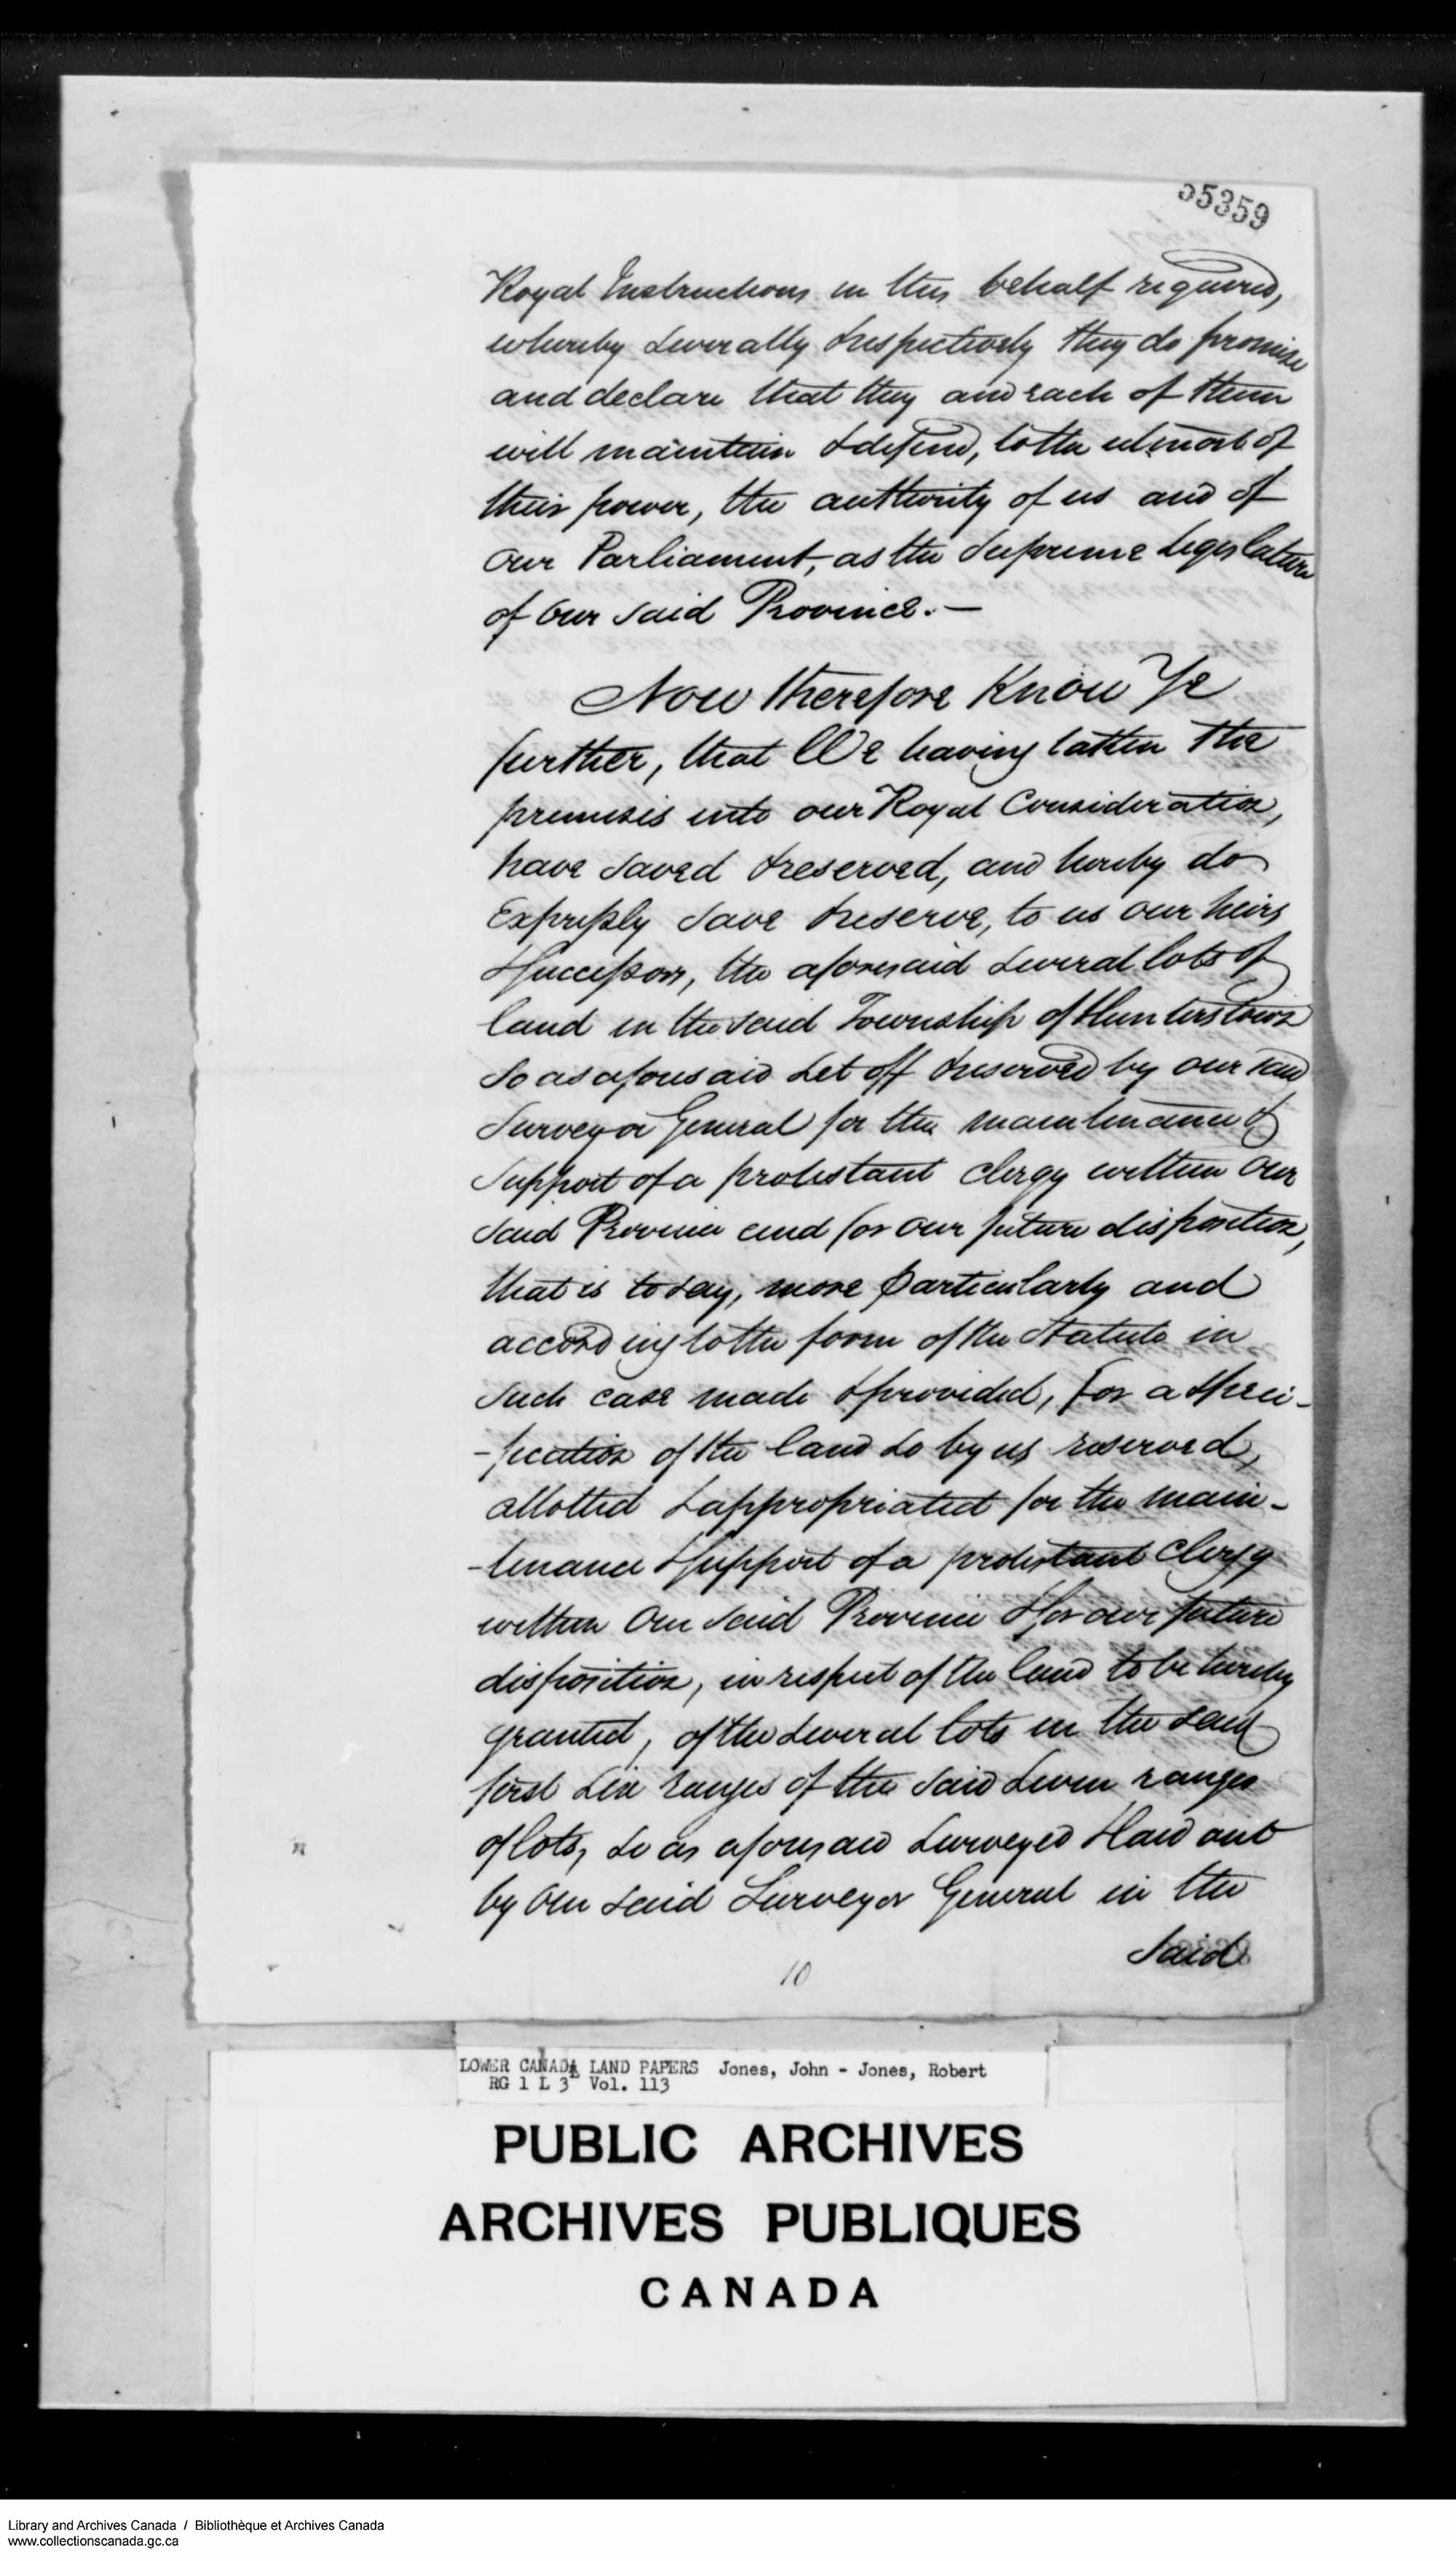 55359
Royal Instructions in this behalf required,
whereby severally & respectively they do promise
and declare that they and each of them
will maintain & defend, to the utmost of
their power, the authority of us and of
our Parliament, as the Supreme Legislature
of Our said Province. —
Now therefore Know Ye
further, that We having taken the
premises into our Royal Consideration,
have saved & reserved, and hereby do
Expressly save & reserve, to us our heirs
& successors, the aforesaid several lots of
land in the said Township of Hunterstown
so as aforesaid set off & reserved by our said
Surveyor General for the maintenance &
Support of a protestant Clergy within Our
said Province and for our future disposition,
that is to say, more particularly and
according to the form of the Statute in
such case made & provided, for a speci-
-fication of the land so by us reserved,
allotted & appropriated for the main-
-tenance & support of a protestant Clergy
within Our said Province & for our future
disposition, in respect of the land to be hereby
granted, of the several lots in the said
first six ranges of the said seven ranges
of lots, so as aforesaid surveyed & laid out
by Our said Surveyor General in the
Said
10
LOWER CANADA LAND PAPERS Jones, John - Jones, Robert
RG 1 L 3 Vol. 113
PUBLIC ARCHIVES
ARCHIVES PUBLIQUES
CANADA
Library and Archives Canada / Bibliothèque et Archives Canada
www.collectionscanada.gc.ca